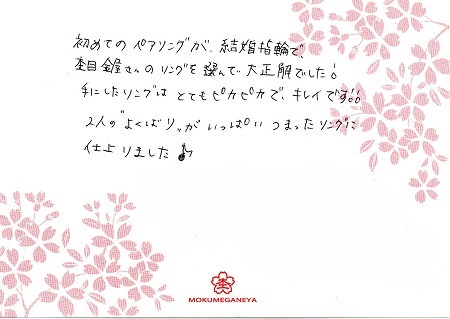 初めてのペアリングが、結婚指輪で、
杢目金屋さんのリングを選んで大正解でした!
手にしたリングは とてもピカピカで、キレイです!!
2人の“よくばり„が いっぱい つまったリングに
仕上りました♪
MOKUMEGANEYA